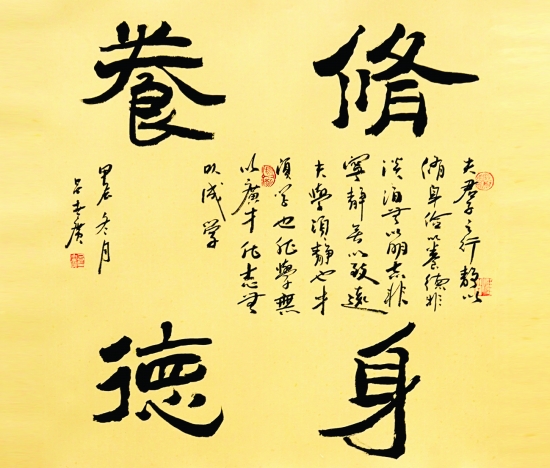 脩身
養德
夫君子之行静以
脩身儉以養德非
淡泊無以明志非
寧静無以致遠
夫學須静也才
須学也非學無
以廣才非志無
以成学
甲辰冬月